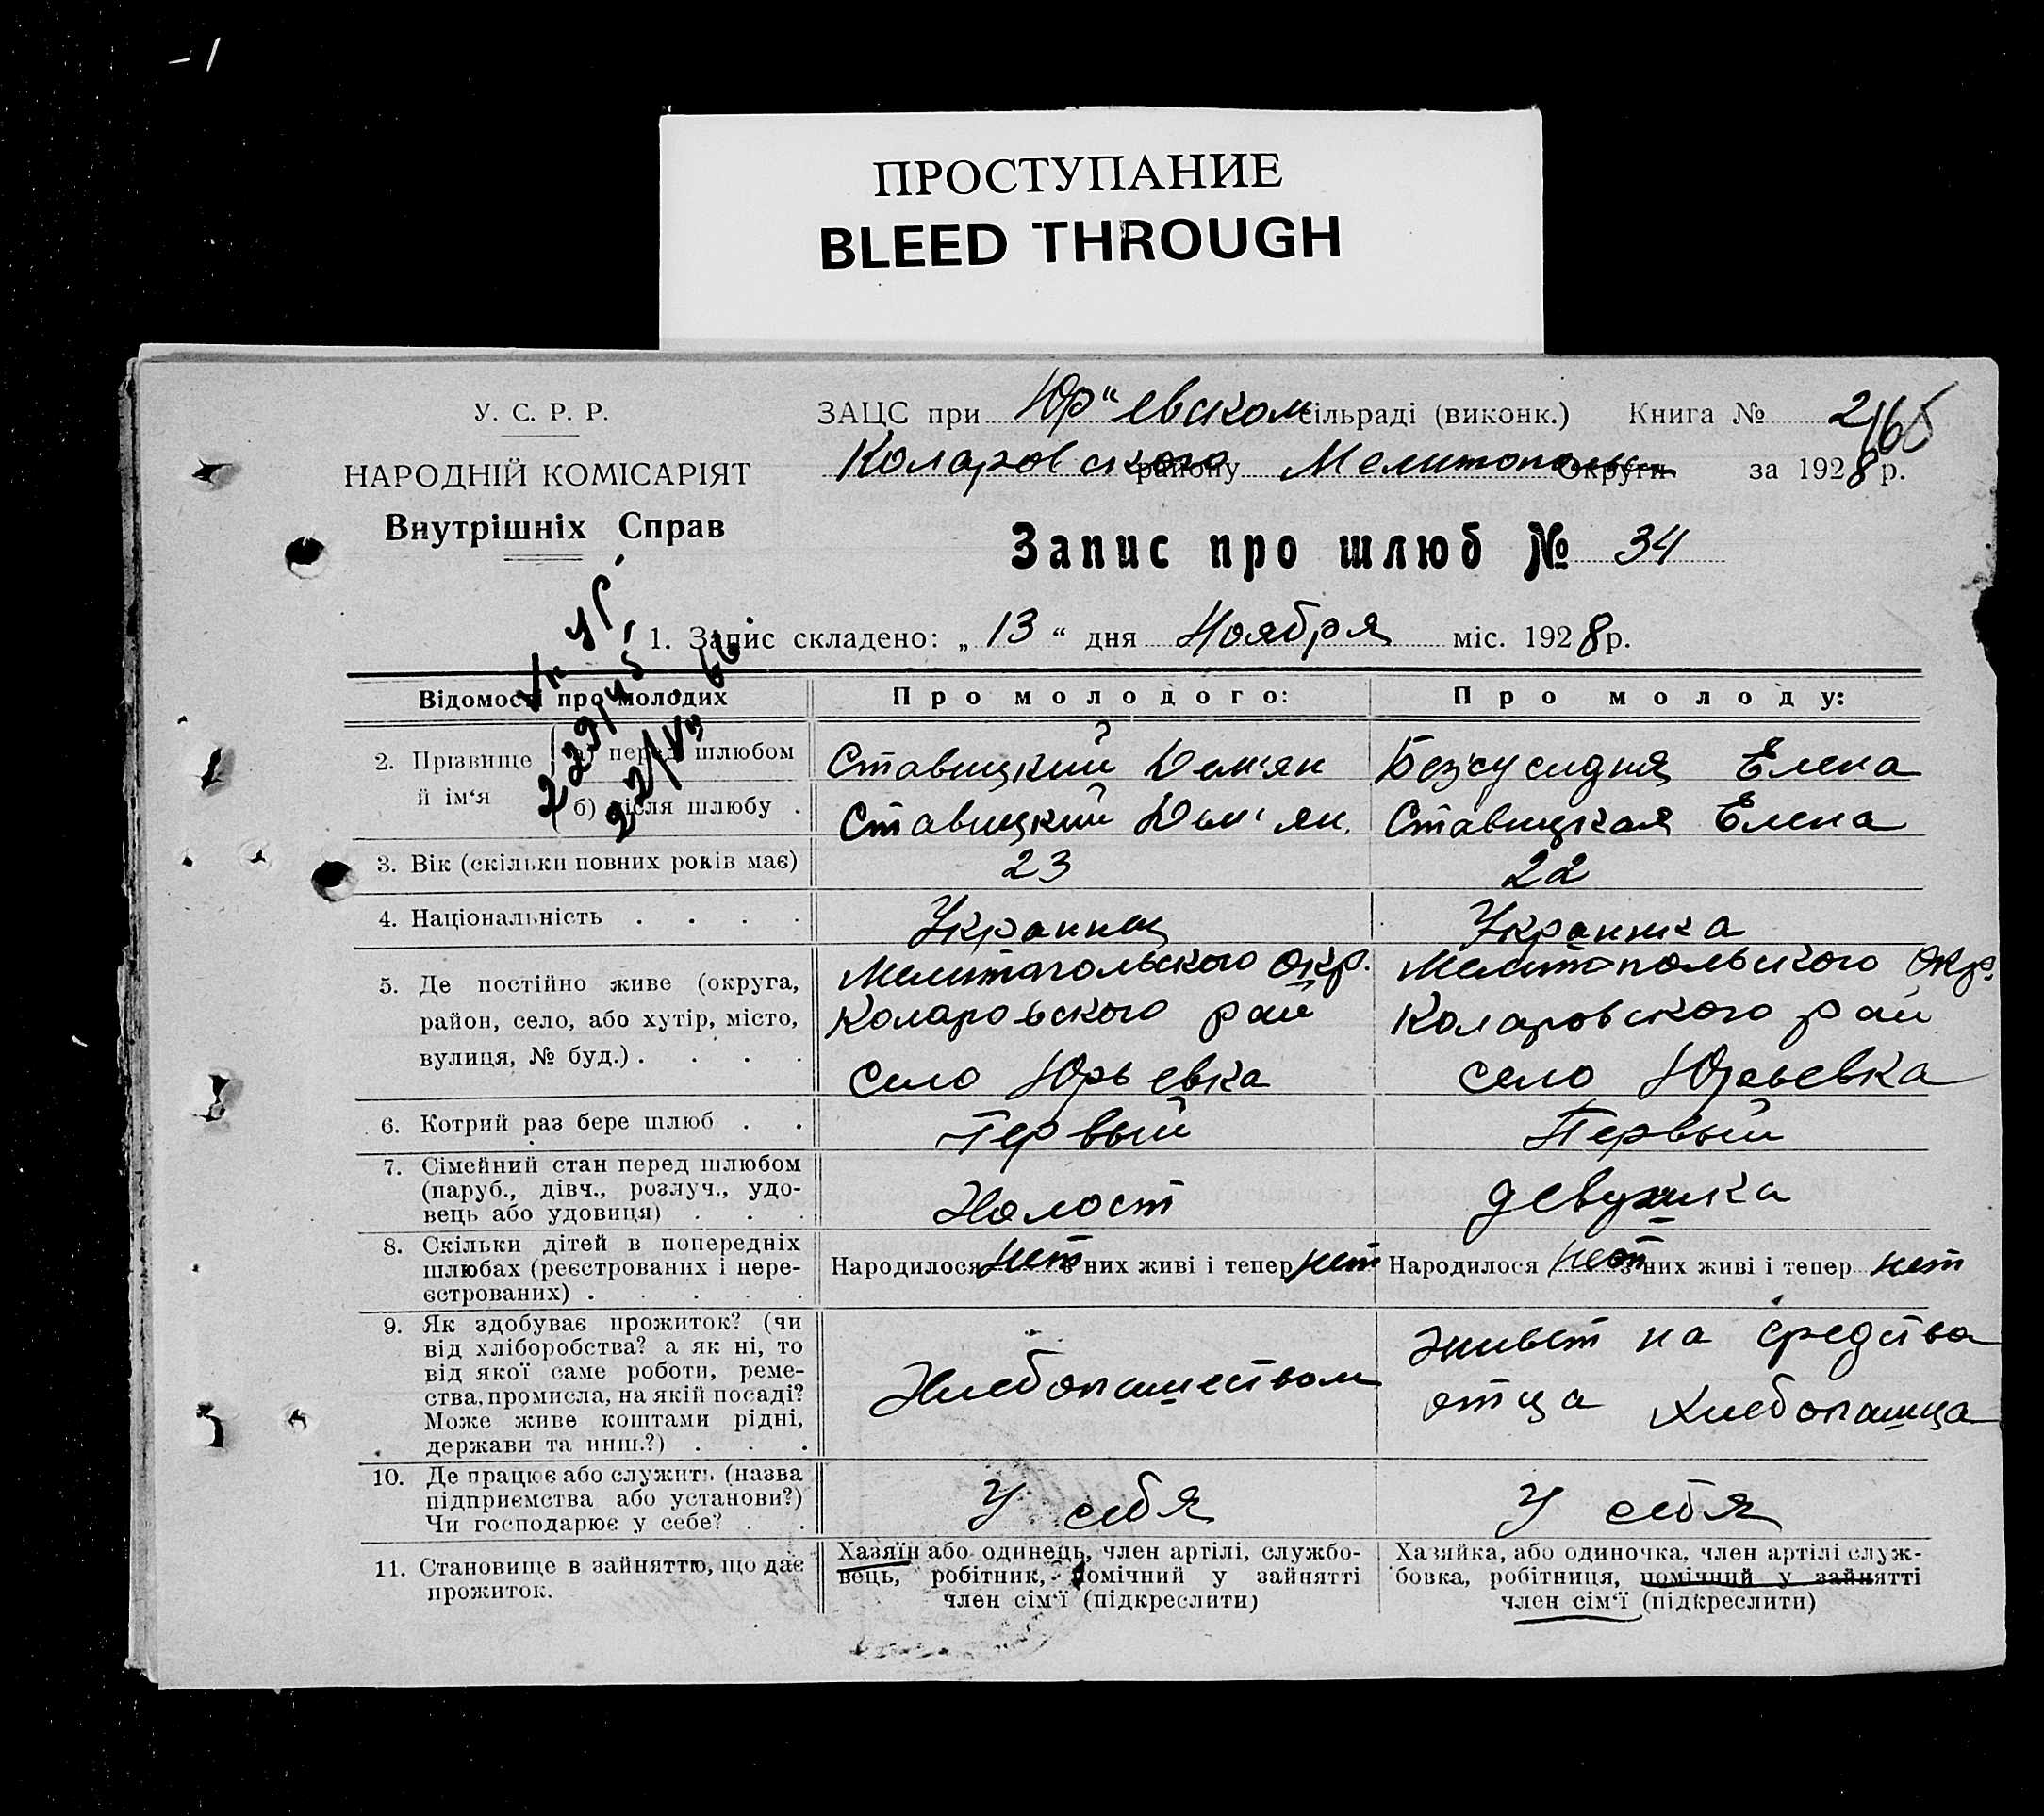 – 1
ПРОСТУПАНИЕ
BLEED THROUGH
У. С. Р. Р.
НАРОДНІЙ КОМІСАРІЯТ
Внутрішніх Справ
ЗАЦС при Юр"евском сільраді (виконк.) Книга № 2/
Коларовского району Мелитополь округи за 1928 р.
Запис про шлюб № 34
1. Запис складено: „ 13 “ дня Ноября міс. 1928 р.
Відомості про молодих
Про молодого:
Про молоду:
2. Прізвище й ім‘я
а) перед шлюбом
Ставицкий Дем'ян
Безсусидня Елена
б) після шлюбу .
Ставицкий Дем'ян
Ставицкая Елена
3. Вік (скільки повних років має)
23
22
4. Національність . . . .
Украинец
Украинка
5. Де постійно живе (округа,
район, село, або хутір, місто,
вулиця, № буд.) . . . .
Мелитопольского Окр.
Коларовского рай
село Юрьевка
Мелитопольского Окр.
Коларовского рай
село Юрьевка
6. Котрий раз бере шлюб . .
Первый
Первый
7. Сімейний стан перед шлюбом
(паруб., дівч., розлуч., удо-
вець або удовиця) . . .
Холост
девушка
8. Скільки дітей в попередніх
шлюбах (реєстрованих і нере-
єстрованих) . . . . .
Народилося нет з них живі і тепер нет
Народилося нет з них живі і тепер нет
9. Як здобуває прожиток? (чи
від хліборобства? а як ні, то
від якої саме роботи, реме-
ства, промисла, на якій посаді?
Може живе коштами рідні,
держави та инш.?) . . .
Хлебопашеством
живет на средства
отца хлебопашца
10. Де працює або служить (назва
підприємства або установи?)
Чи господарює у себе? . .
У себя
У себя
11. Становище в зайняттю, що дає
прожиток.
Хазяїн або одинець, член артілі, службо-
вець, робітник, помічний у зайнятті
член сім‘ї (підкреслити)
Хазяйка, або одиночка, член артілі служ-
бовка, робітниця, помічний у зайнятті
член сім‘ї (підкреслити)